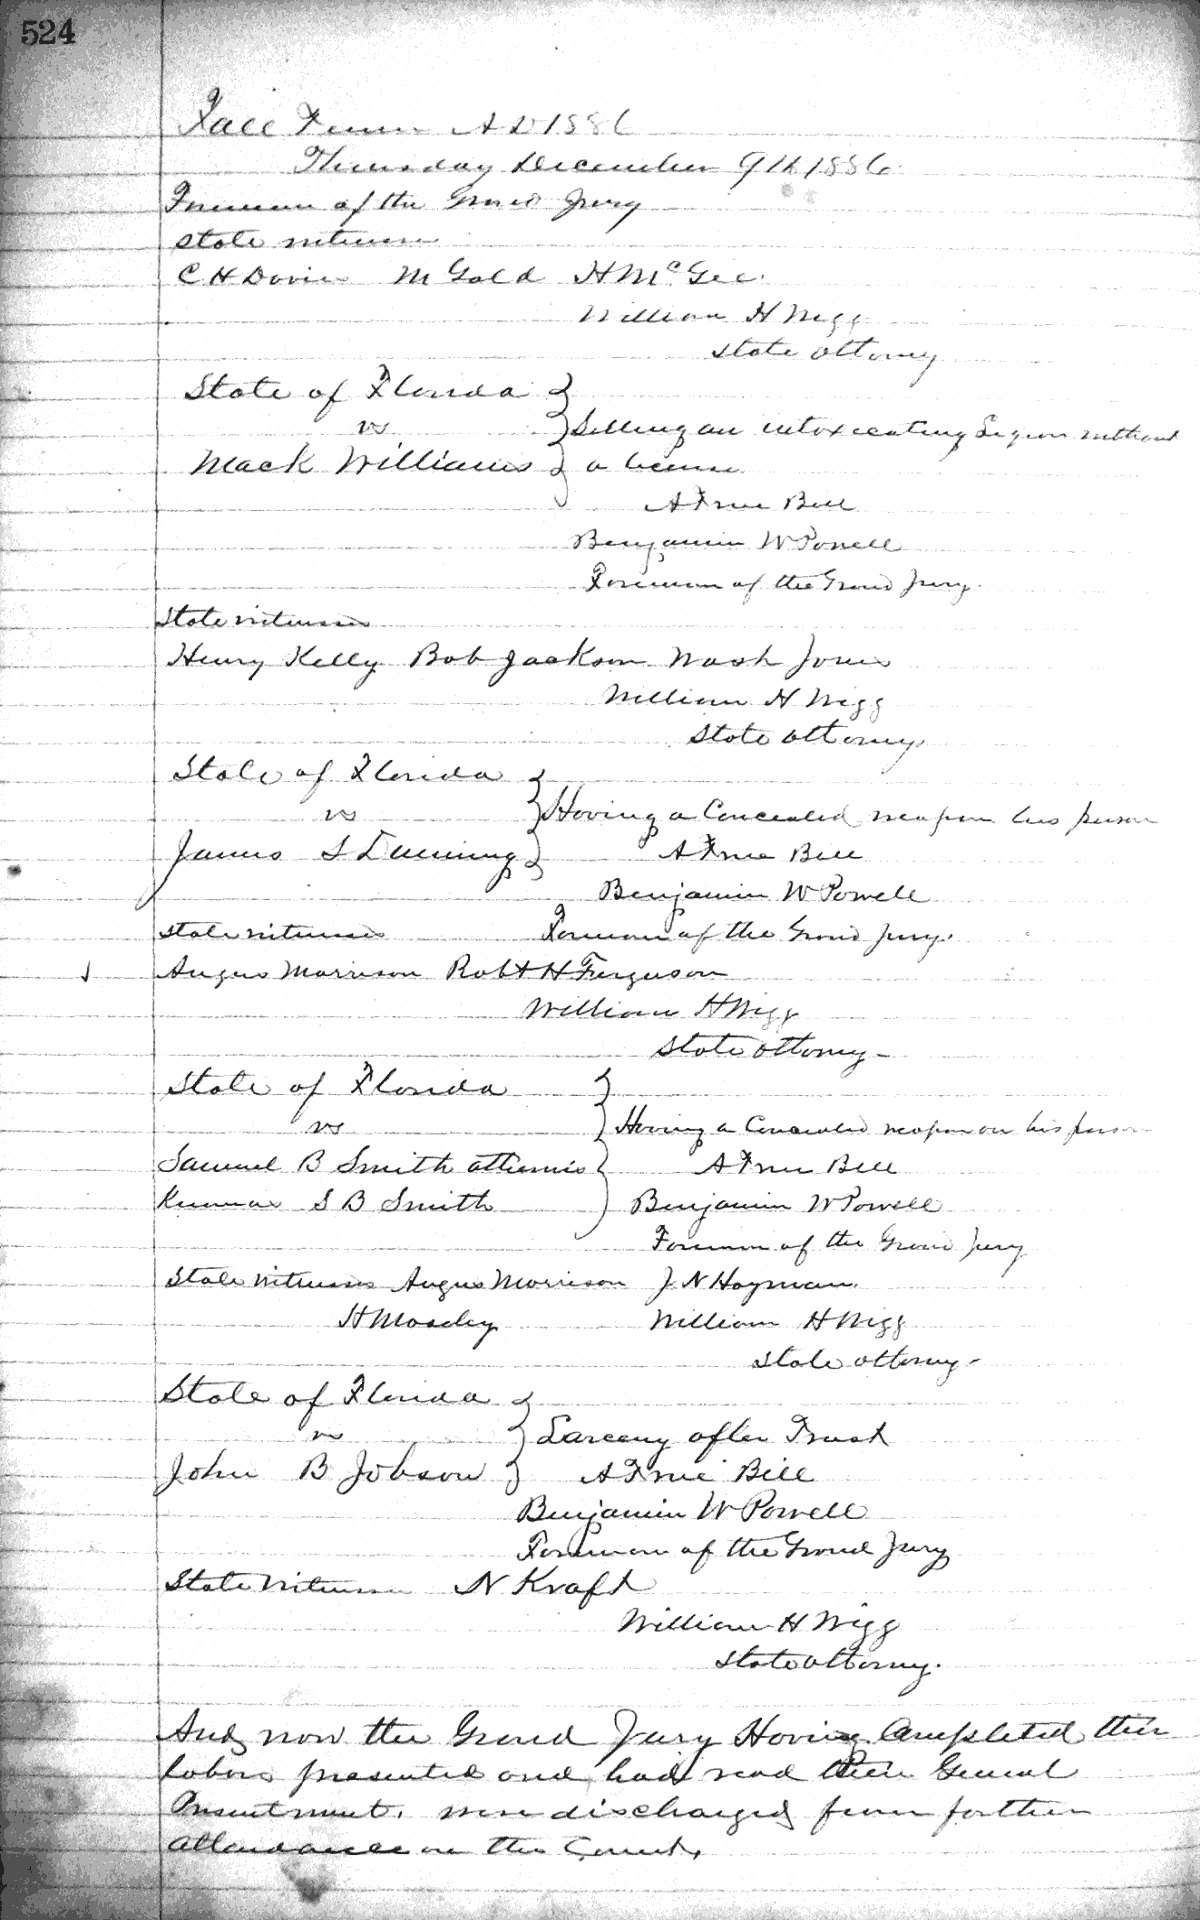 524
Fall Term A D 1886
Thursday December 9th 1886
Foreman of the Grand Jury
State witnesses
C H Davis M Gold H McGee
William H Wigg
State attorney
State of Florida
vs Selling an intoxicating Liquor without
Mack Williams a license
A True Bill
Benjamin W Powell
Foreman of the Grand Jury
State witnesses
Henry Kelly Bob Jackson Wash Jones
William H Wigg
State attorney
State of Florida
vs Having a Concealed weapon his person
James S Denning A True Bill
Benjamin W Powell
State witnesses Foreman of the Grand Jury
Angus Morrison Robt H Ferguson
William H Wigg
State attorney
State of Florida
vs Having a Concealed weapon on his person
Samuel B Smith otherwise A True Bill
Known as S B Smith Benjamin W Powell
Foreman of the Grand Jury
State witnesses Angus Morrison J N Hayman
H Moseley William H Wigg
State attorney
State of Florida
vs Larceny after Trust
John B Jobson A True Bill
Benjamin W Powell
Foreman of the Grand Jury
State Witness N Kraft
William H Wigg
State attorney.
And now the Grand Jury Having Completed their
labors presented and had read their General
Presentment. were discharged from further
attendance on this Court.